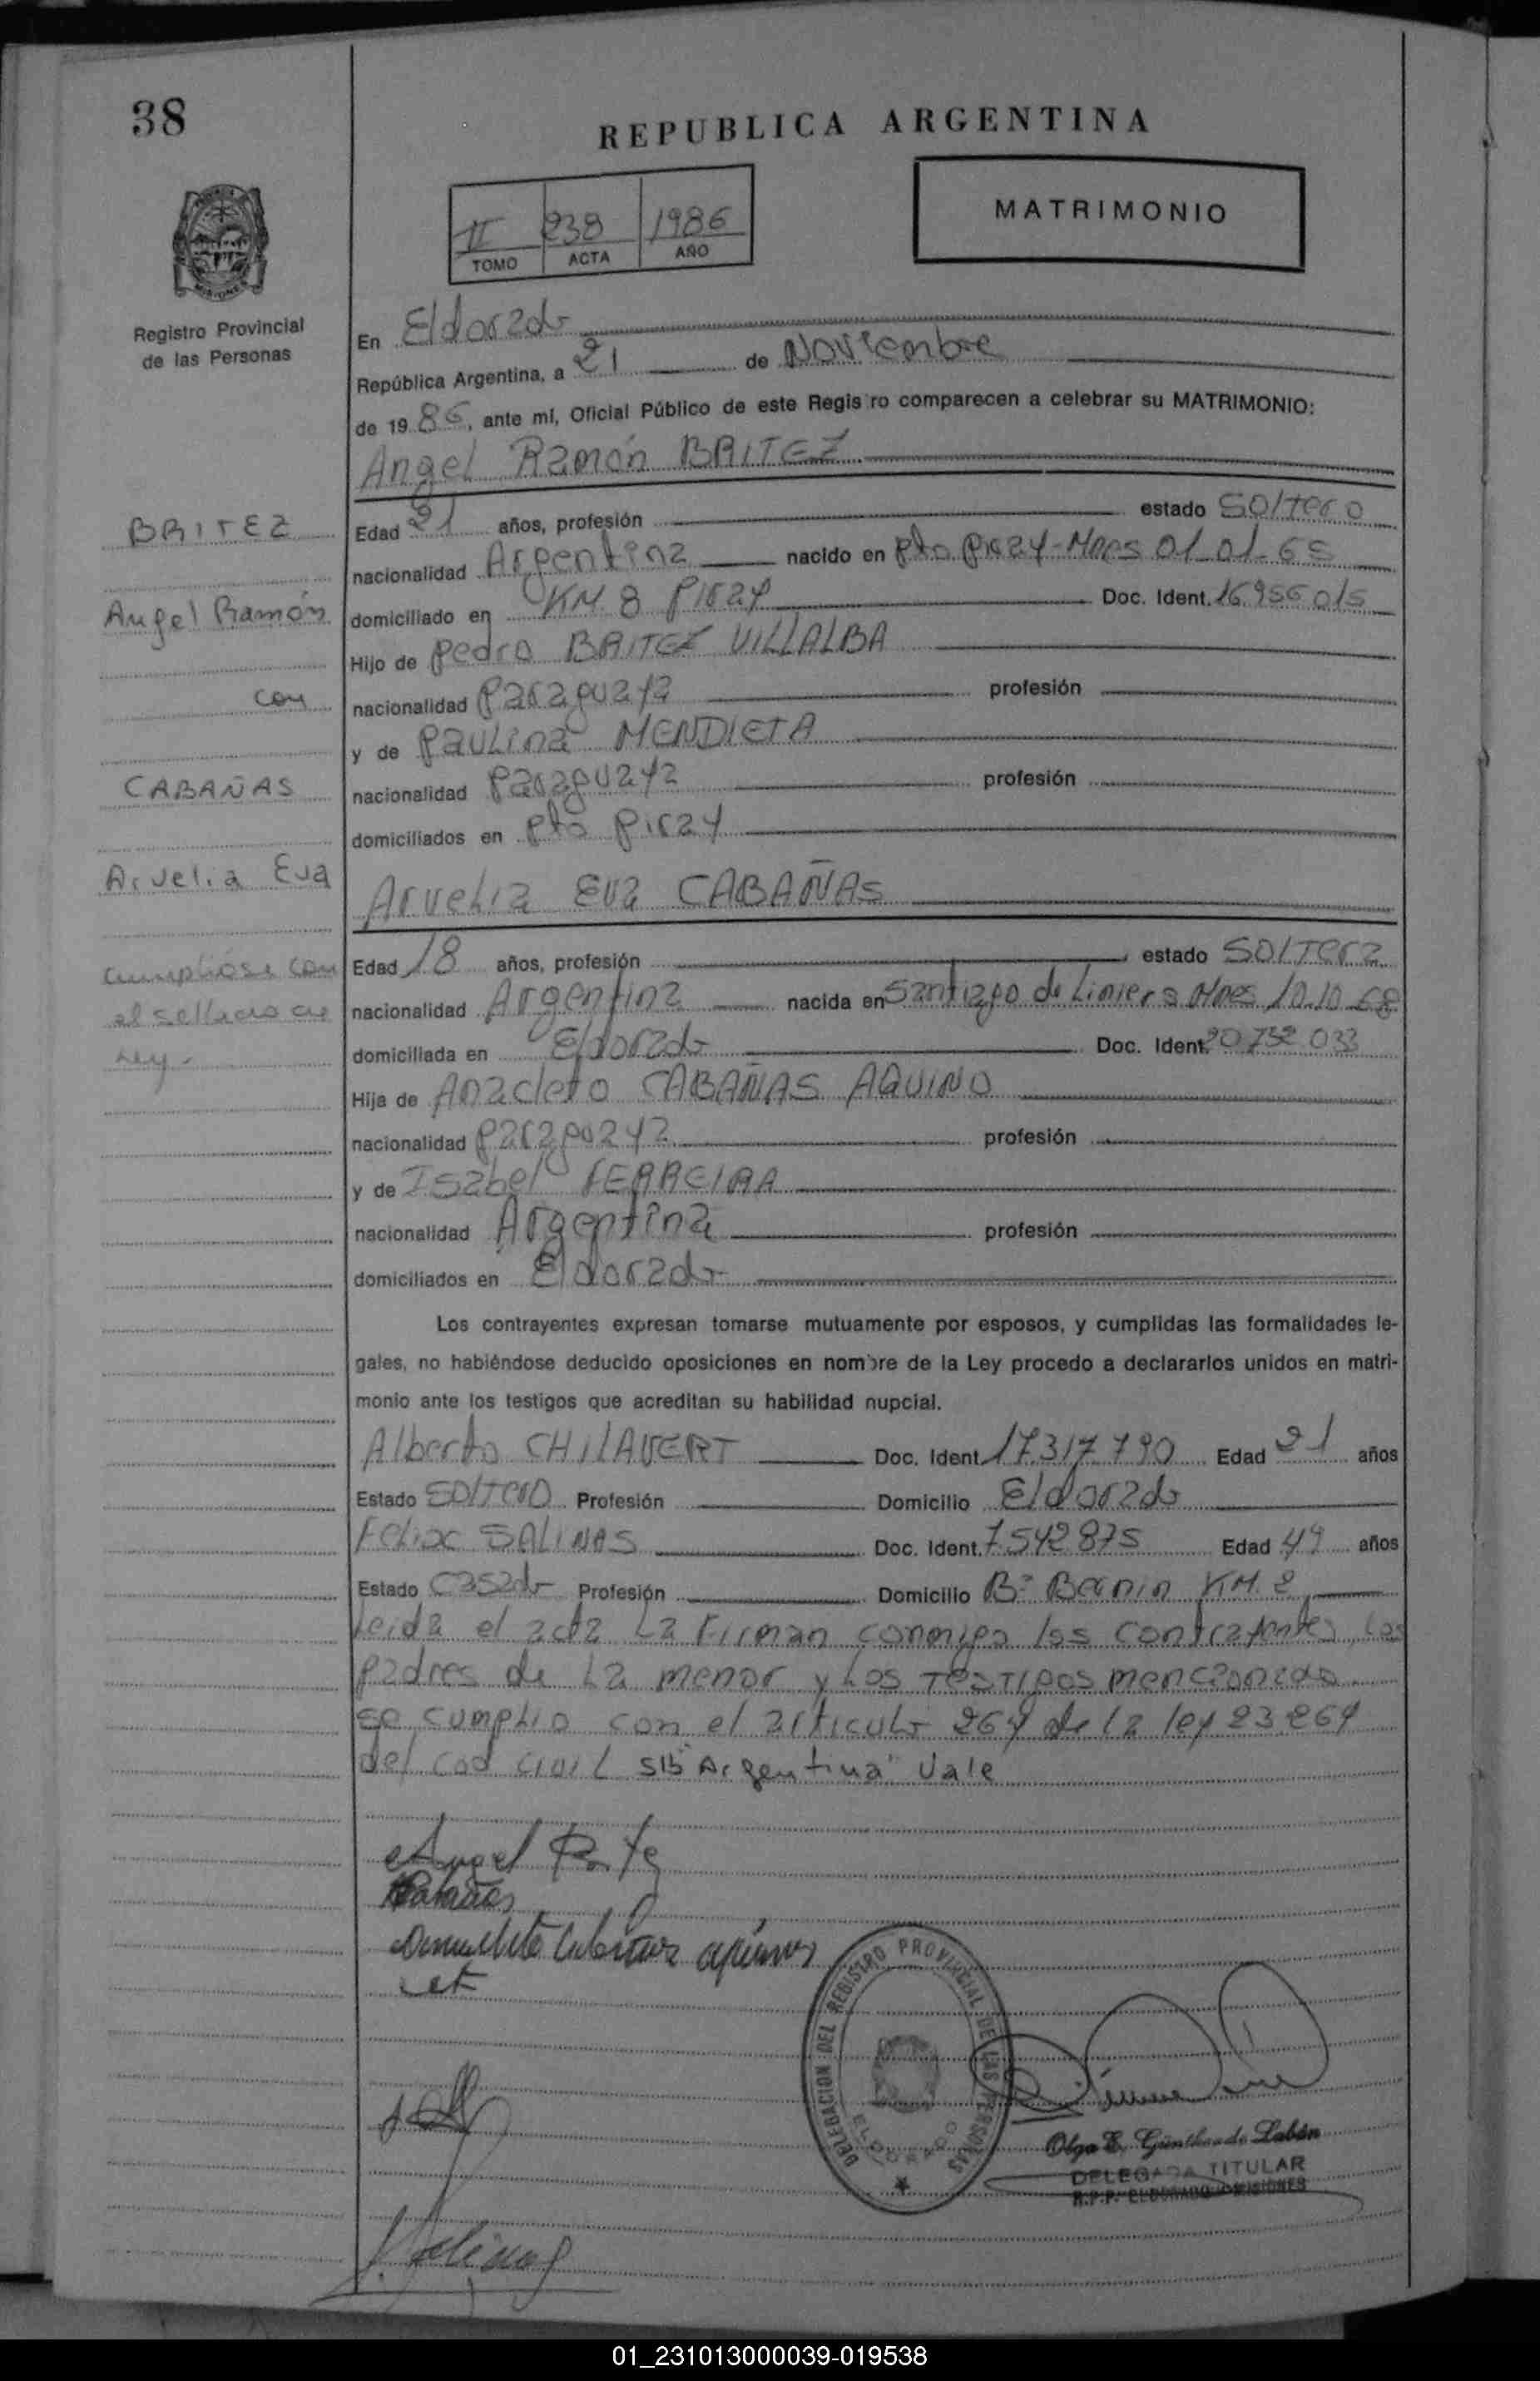 38
REPUBLICA ARGENTINA
MATRIMONIO
II 238 1986
TOMO ACTA AÑO
MISIONES
Registro Provincial
de las Personas
En Eldorado
República Argentina, a 21 de Noviembre
de 1986, ante mí, Oficial Público de este Registro comparecen a celebrar su MATRIMONIO:
Angel Ramón BRITEZ
BRITEZ
Angel Ramón
con
CABAÑAS
Arvelia Eva
cumplióse con
el sellado de
ley.-
Edad 21 años, profesión estado Soltero
nacionalidad Argentina nacido en Pto Piray-Mnes 01-01-65
domiciliado en KM 8 Piray Doc. Ident. 16.956.015
Hijo de Pedro BRITEZ VILLALBA
nacionalidad Paraguaya profesión
y de Paulina MENDIETA
nacionalidad Paraguaya profesión
domiciliados en Pto Piray
Arvelia Eva CABAÑAS
Edad 18 años, profesión estado Soltera
nacionalidad Argentina nacida en Santiago de Liniers Mnes 10.10.68
domiciliada en Eldorado Doc. Ident. 20.732.033
Hija de Anacleto CABAÑAS AQUINO
nacionalidad Paraguaya profesión
y de Isabel FERREIRA
nacionalidad Argentina profesión
domiciliados en Eldorado
Los contrayentes expresan tomarse mutuamente por esposos, y cumplidas las formalidades le-
gales, no habiéndose deducido oposiciones en nombre de la Ley procedo a declararlos unidos en matri-
monio ante los testigos que acreditan su habilidad nupcial.
Alberto CHILAVERT Doc. Ident. 17.317.790 Edad 21 años
Estado Soltero Profesión Domicilio Eldorado
Felix SALINAS Doc. Ident. 7.542.875 Edad 49 años
Estado Casado Profesión Domicilio Bº KM. 2
Leida el acta La Firman conmigo los contrayentes, los
padres de La menor y Los Testigos mencionado
se cumplio con el articulo 264 de la ley 23.264
del Cod Civil S/B "Argentina" Vale
Angel
Cabañas
DELEGACION DEL REGISTRO PROVINCIAL DE LAS PERSONAS
ELDORADO
Olga E. Günther de Labán
DELEGADA TITULAR
R.P.P. ELDORADO - MISIONES
Salinas
01_231013000039-019538